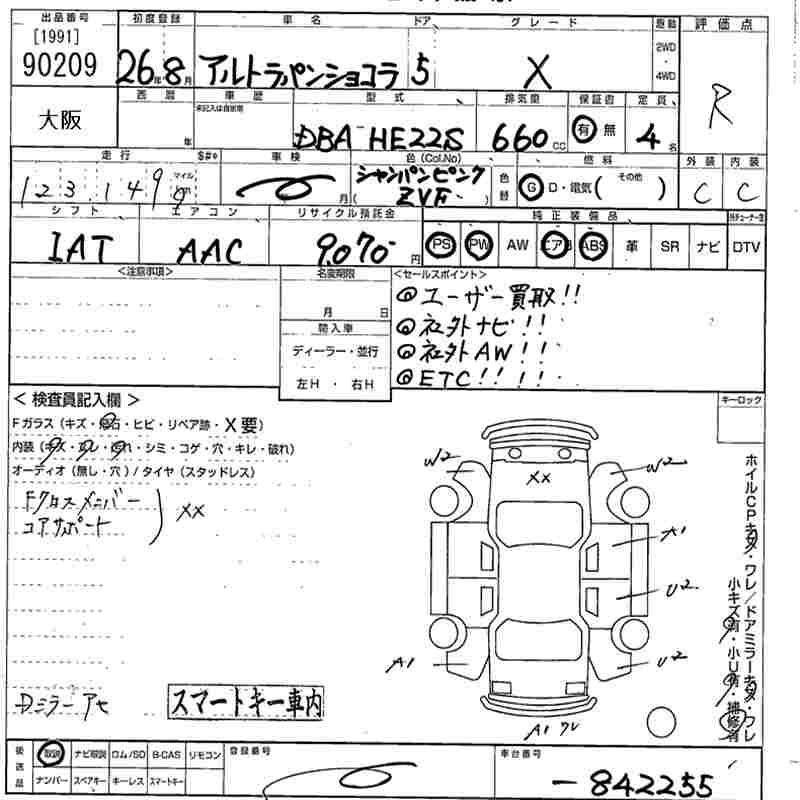 出品番号 初度登録 車名 ドア グレード 駆動 評価点
[1991]
90209 26年8月 アルトラパンショコラ 5 X 2WD・4WD R
大阪 西暦 年 車歴 未記入は自家用 型式 DBA HE22S 排気量 660cc 保証書 有 無 定員 4名
走行 マイル km S#® 車検 月 色(Col.No) 色替 燃料 外装 内装
シャンパンピンク
ZVF
G D・電気( その他 ) C C
シフト エアコン リサイクル預託金 純正装備品
IAT AAC 9,070円 PS PW AW エアB ABS 革 SR ナビ DTV
<注意事項> 名変期限 月 日 <セールスポイント>
◎ユーザー買取!!
◎社外ナビ!!
◎社外AW!!
◎ETC!!!!!
輸入車
ディーラー・並行
左H・右H
<検査員記入欄> キーロック
Fガラス(キズ・飛石・ヒビ・リペア跡・X要)
内装(キズ・スレ・汚れ・シミ・コゲ・穴・キレ・破れ)
オーディオ(無し・穴)/タイヤ(スタッドレス)
Fクロスメンバー
コアサポート
XX
XX
W2 W2
A1
U2
A1 U2
A1 ワレ
ホイルCPキズ・ワレ/ドアミラーキズ・ワレ
小キズ有・小U有・補修有
Dミラーアセ
スマートキー車内
後送品 取説 ナビ取説 ロム/SD B-CAS リモコン 登録番号 車台番号
ナンバー スペアキー キーレス スマートキー
-842255